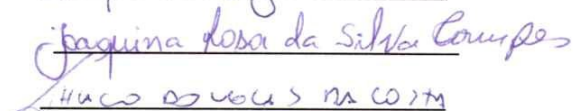 Joaquina Rosa da Silva Campos
Hugo da Costa